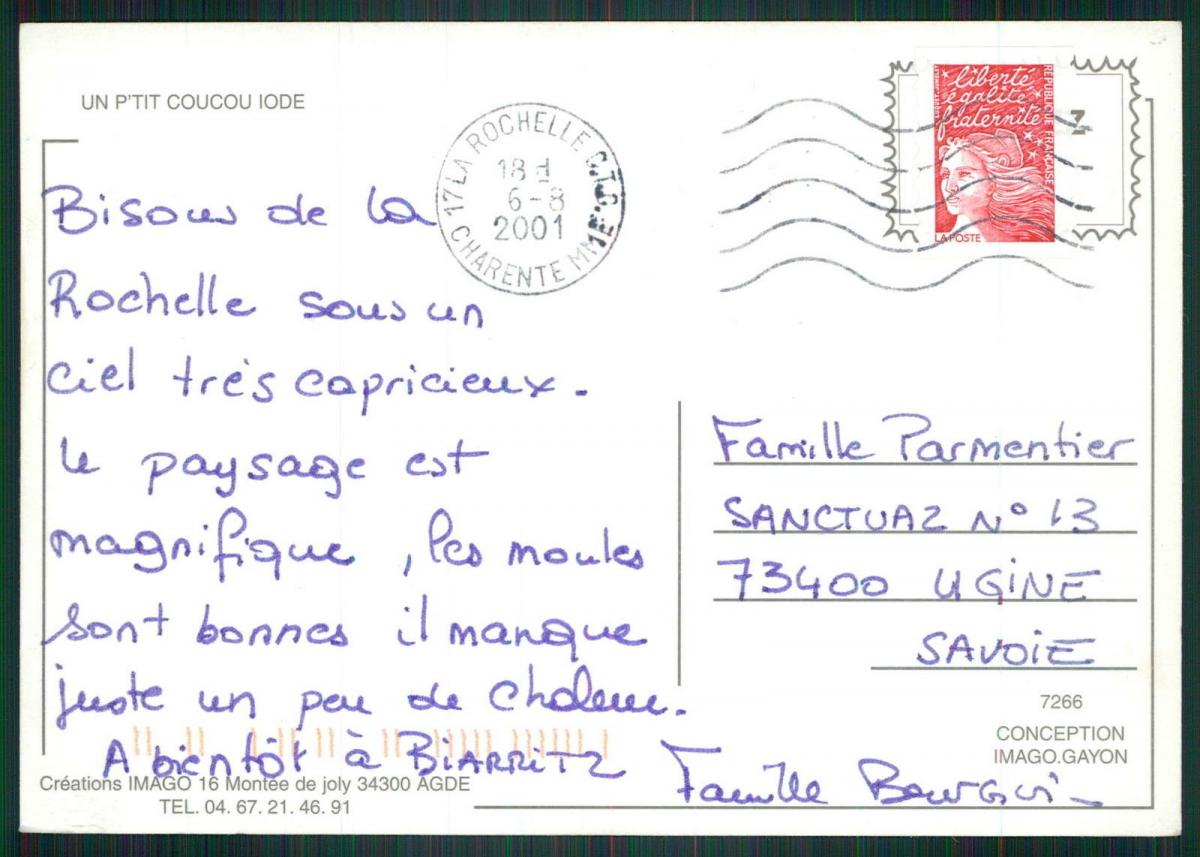 UN P'TIT COUCOU IODE
17 LA ROCHELLE C.T.C.
18 H
6-8
2001
CHARENTE MME
liberté
égalité
fraternité
RÉPUBLIQUE FRANÇAISE
LA POSTE
Bisous de la
Rochelle sous un
ciel très capricieux.
Le paysage est
magnifique, les moules
sont bonnes il manque
juste un peu de chaleur.
A bientôt à BIARRITZ
Famille
Famille Parmentier
SANCTUAZ N° 13
73400 UGINE
SAVOIE
7266
CONCEPTION
IMAGO.GAYON
Créations IMAGO 16 Montée de joly 34300 AGDE
TEL. 04. 67. 21. 46. 91